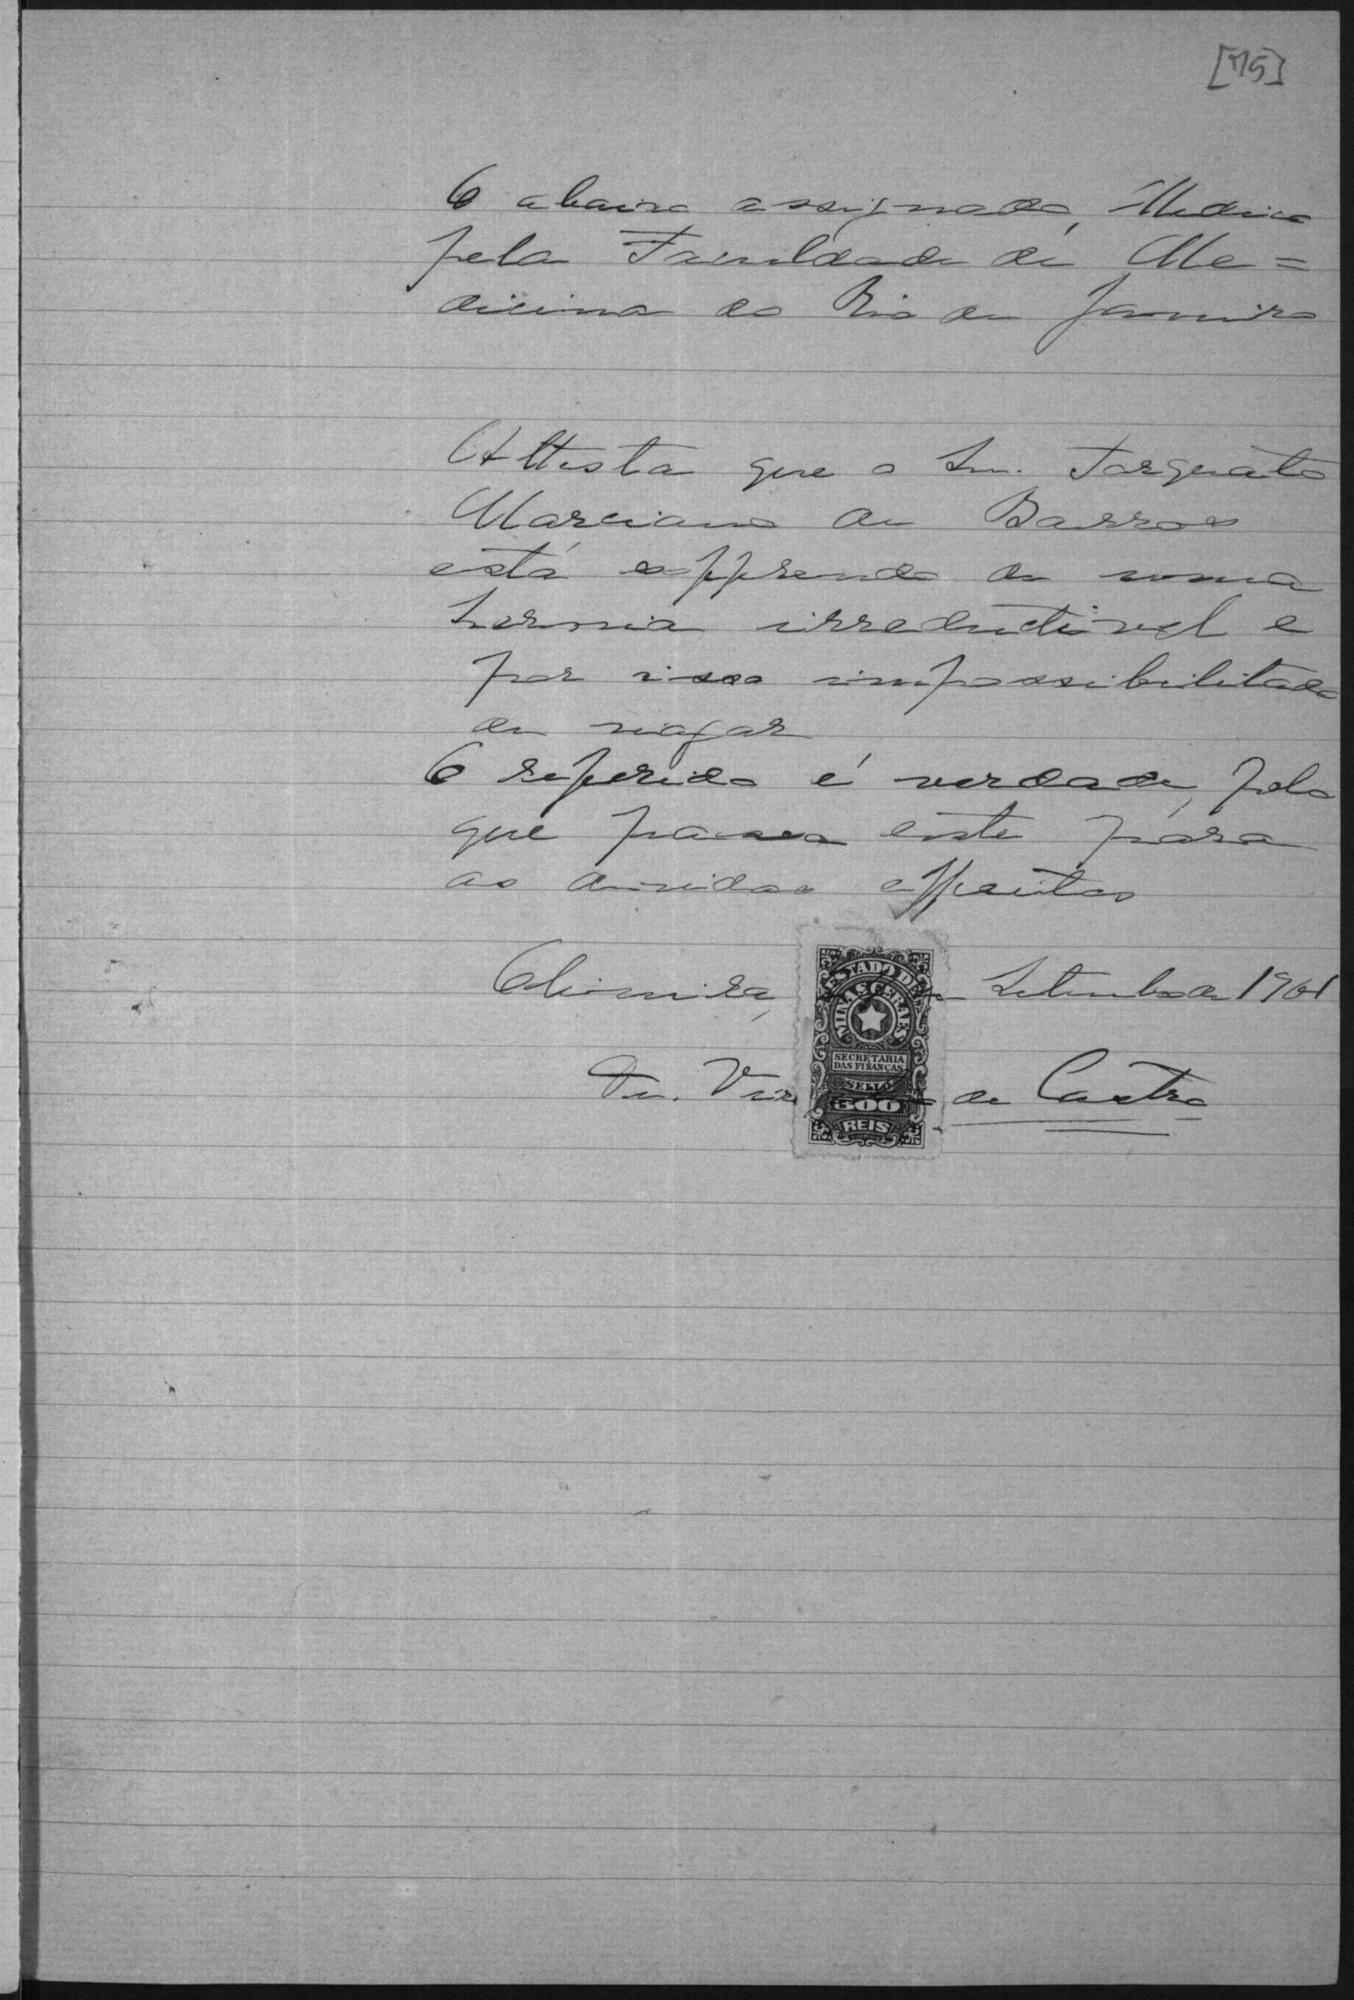 [75]
O abaixo assignado, Medico
pela Faculdade de Me=
dicina do Rio de Janeiro
Attesta que o Snr. Torquato
Marciano de Barros
está soffrendo de uma
hernia irreductivel e
por isso impossibilitado
de viajar
O referido é verdade, pelo
que passo este para
os devidos effeitos
de Setembro de 1901
Dr. de Castro
ESTADO DE
MINAS GERAES
SECRETARIA
DAS FINANÇAS
SELLO
300
REIS